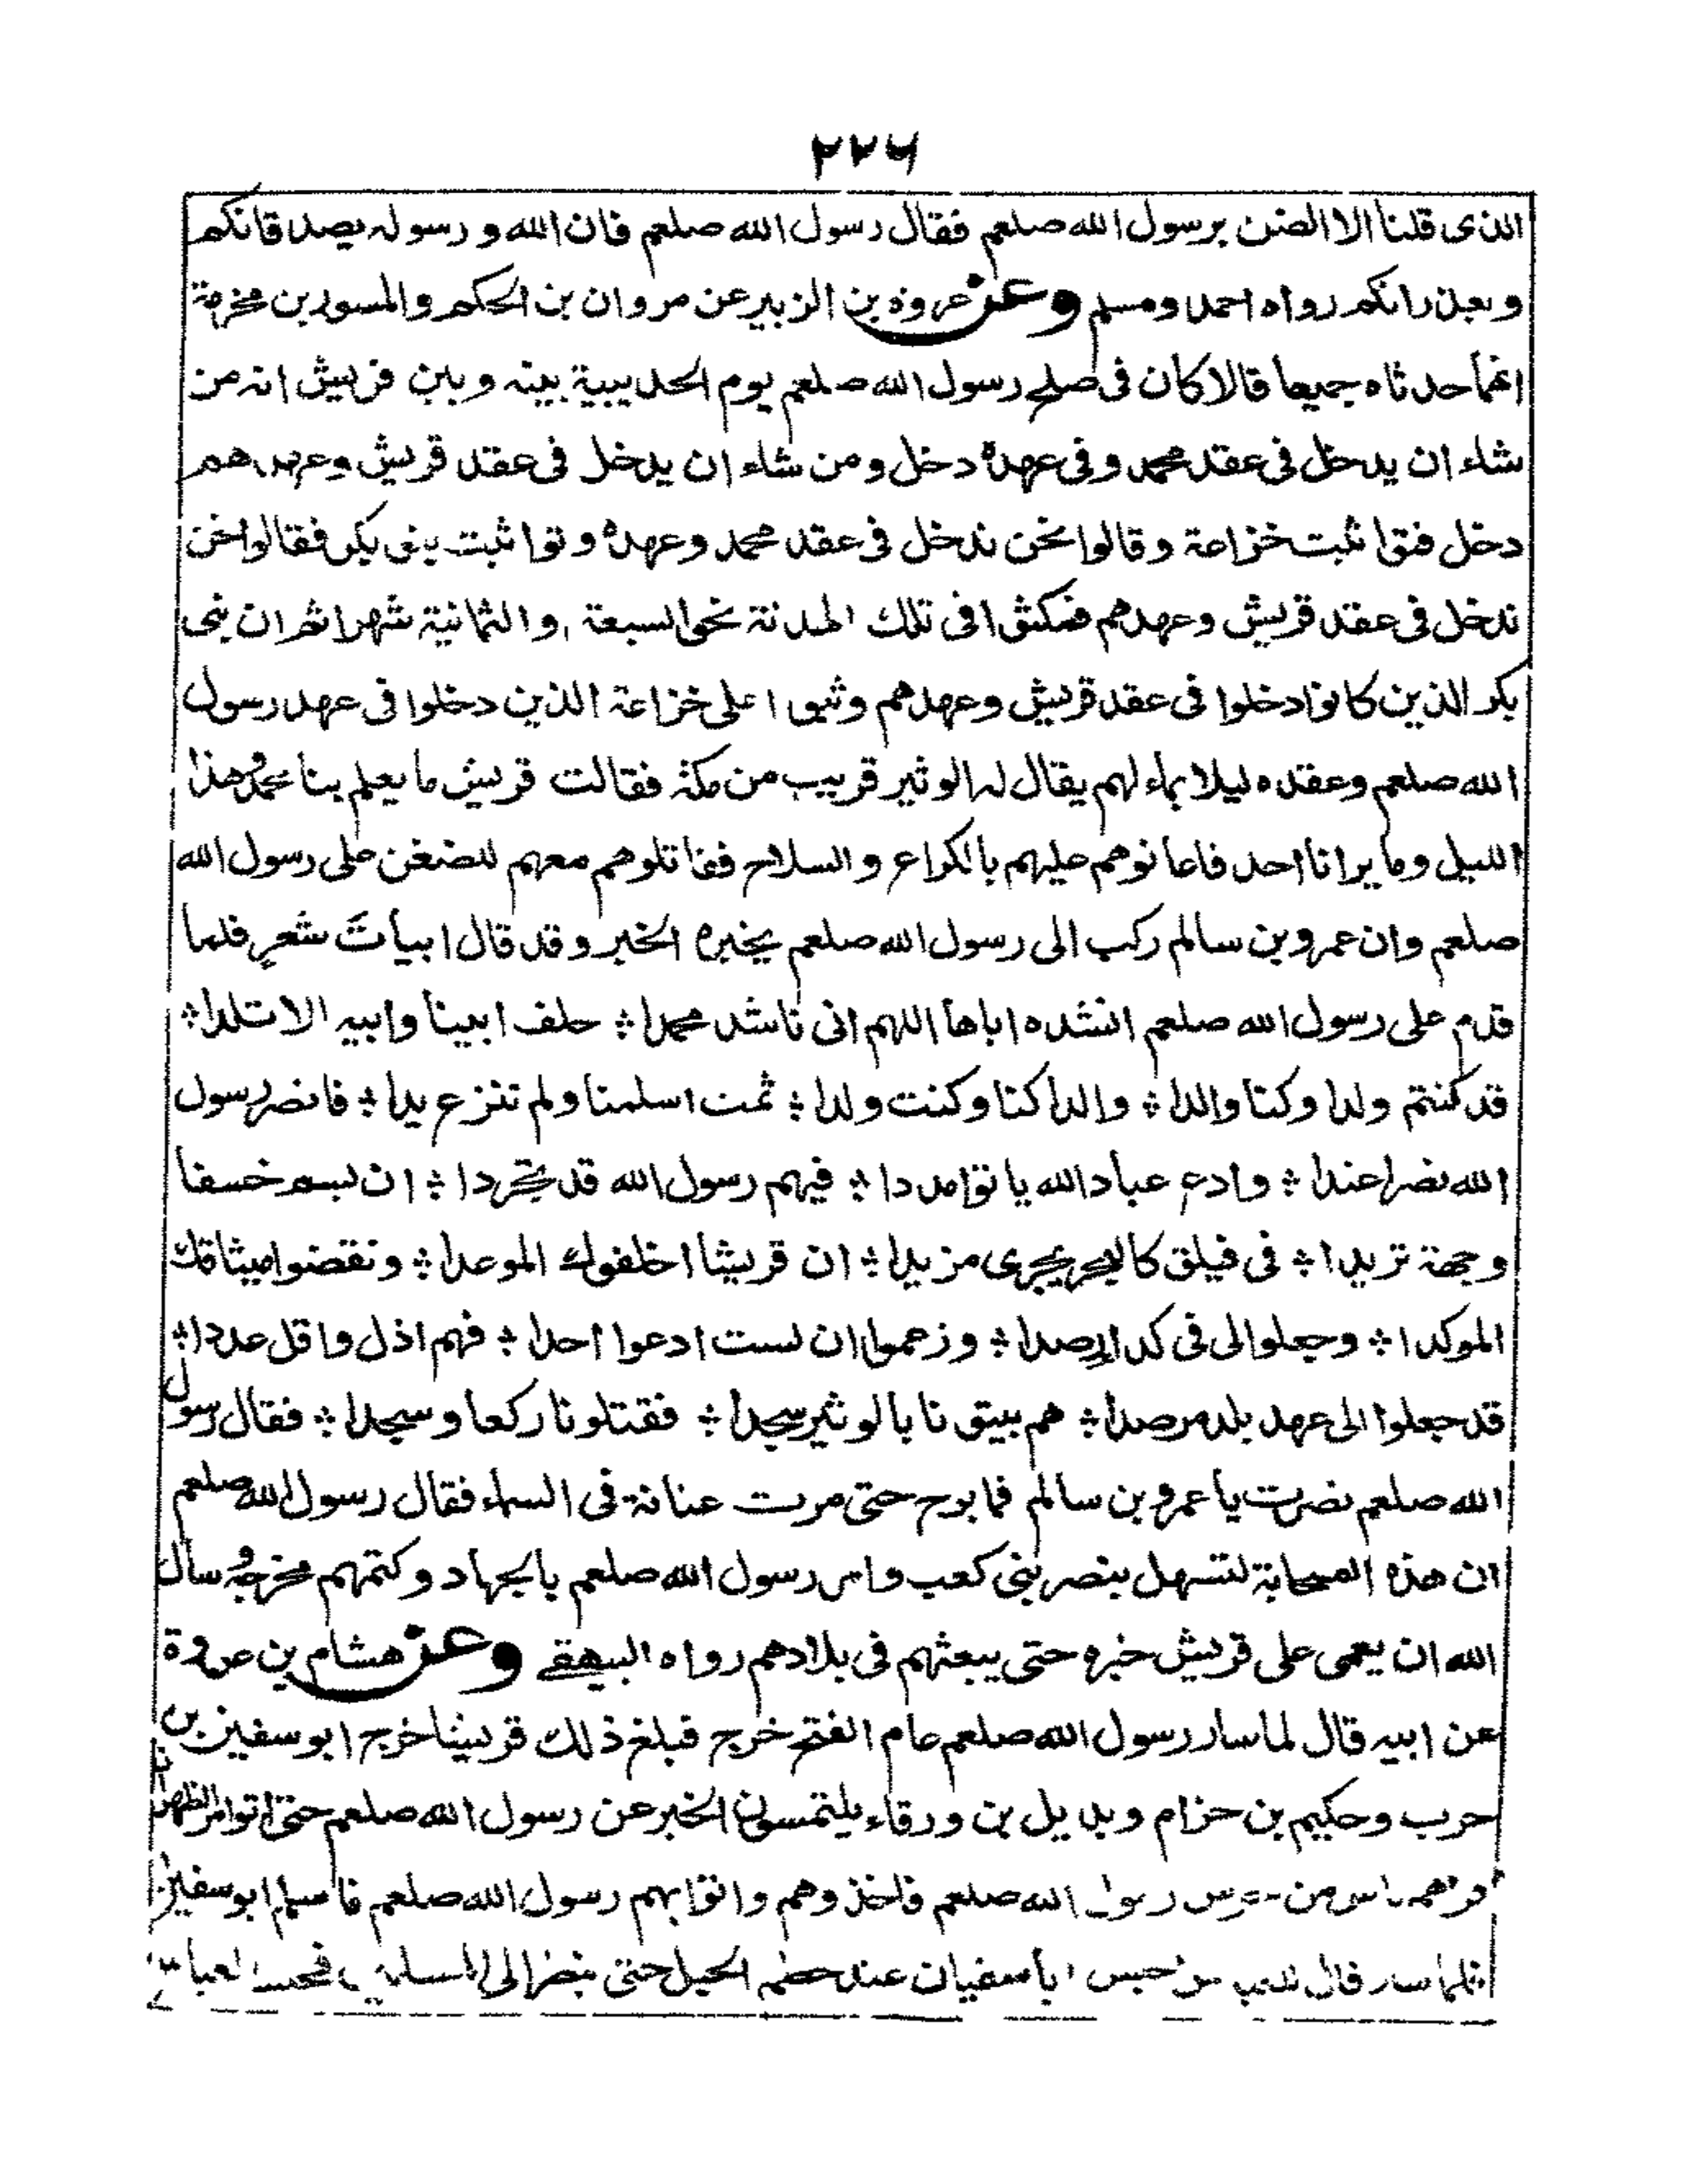 ٢٢٦
الذى قلنا الا الضن برسول الله صلعم فقال رسول الله صلعم فان الله و رسوله يصدقانكم
و يعذرانكم رواه احمد ومسلم وعن عروة بن الزبير عن مروان بن الحكم والمسور بن مخرمة
انهما حدثاه جميعا قالا كان فى صلح رسول الله صلعم يوم الحديبية بينه وبين قريش انه من
شاء ان يدخل فى عقد محمد وفى عهده دخل ومن شاء ان يدخل فى عقد قريش وعهدهم
دخل فتواثبت خزاعة وقالوا نحن ندخل فى عقد محمد وعهده وتواثبت بنى بكر فقالوا نحن
ندخل فى عقد قريش وعهدهم فمكثوا فى تلك الهدنة نحوالسبعة والثمانية شهرا ثم ان بنى
بكر الذين كانوا دخلوا فى عقد قريش وعهدهم وثبوا على خزاعة الذين دخلوا فى عهد رسول
الله صلعم وعقده ليلا بماء لهم يقال له الوثير قريب من مكة فقالت قريش ما يعلم بنا محمد وهذا
الليل وما يرانا احد فاعانوهم عليهم بالكراع والسلاح فقاتلوهم معهم للضغن على رسول الله
صلعم وان عمرو بن سالم ركب الى رسول الله صلعم يخبره الخبر وقد قال ابيات شعر فلما
قدم على رسول الله صلعم انشده اباها اللهم انى ناشد محمدا ؞ حلف ابينا وابيه الاتلدا ؞
قد كنتم ولدا وكنا والدا ؞ والدا كنا وكنت ولدا ؞ ثمت اسلمنا ولم تنزع يدا ؞ فانصر رسول
الله نصرا عندا ؞ وادع عباد الله ياتوا مددا ؞ فيهم رسول الله قد تجردا ؞ ان سيم خسفا
وجهة تربدا ؞ فى فيلق كالبحر يجرى مزبدا ؞ ان قريشا اخلفوك الموعدا ؞ ونقضوا ميثاقك
الموكدا ؞ وجعلوا لى فى كداء رصدا ؞ وزعموا ان لست ادعوا احدا ؞ فهم اذل واقل عددا ؞
قد جعلوا الى عهد بلد مرصدا ؞ هم بيتونا بالوثير سجدا ؞ فقتلونا ركعا وسجدا ؞ فقال رسول
الله صلعم نصرت يا عمرو بن سالم فما برح حتى مرت عنانة فى السماء فقال رسول الله صلعم
ان هذه السحابة لتستهل بنصر بنى كعب وامر رسول الله صلعم بالجهاد وكتمهم مخرجه وسأل
الله ان يعمى على قريش خبره حتى يبعثهم فى بلادهم رواه البيهقے وعن هشام بن عروة
عن ابيه قال لما سار رسول الله صلعم عام الفتح خرج فبلغ ذلك قريشا خرج ابو سفين بن
حرب وحكيم بن حزام وبديل بن ورقاء يلتمسون الخبر عن رسول الله صلعم حتى اتوا مر الظهران
ناس من حرس رسول الله صلعم فاخذوهم واتوا بهم رسول الله صلعم فاسلم ابو سفين
فلما سار قال احبس ابا سفيان عند حطم الخيل حتى ينظر الى المسلمين فحبسه العباس